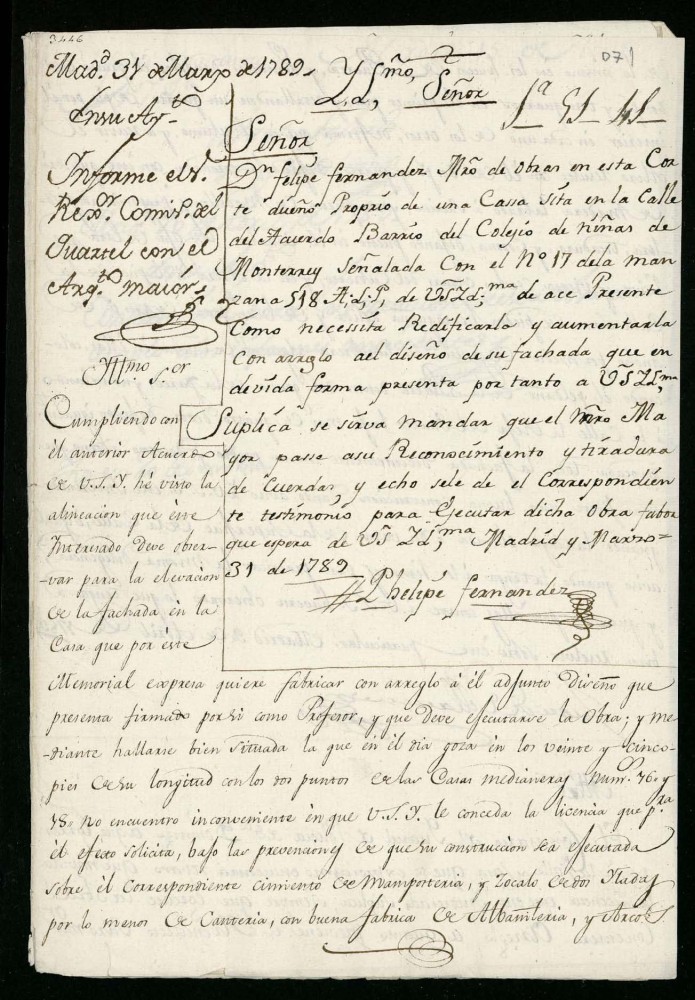 3446
071
Mad.d 31 de Marzo de 1789
En su Ay.to
Informe el S.r
Rex.or Comis.o del
Quartel con el
Arq.to maior.
Yll.mo Señor
Señor
D.n felipe fernandez Mrô de obras en esta Cor
te dueño Proprio de una Cassa sita en la Calle
del Acuerdo Barrio del Colejio de niñas de
Monterrey señalada Con el Nº 17 dela man
zana 518 A.L.P. de VS YL.ma de ace Presente
Como necessita Redificarla y aumentarla
Con arreglo ael diseño de su fachada que en
devida forma presenta por tanto a VS YL.ma
Suplica se sirva mandar que el Mrô Ma
yor passe asu Reconocimiento y tiradura
de Cuerdas, y echo sele de el Correspondien
te testimonio para Ejecutar dicha obra fabor
que espera de VS YL.ma Madrid y Marzo
31 de 1789
Phelipe fernandez
Ill.mo S.or
Cumpliendo con
él anterior Acuerdo
de V.S.Y. hé visto la
alineacion que éste
Interesado deve obser-
-var para la elevacion
de la fachada én la
Casa que por éste
Memorial expresa quiere fabricar con arreglo á él adjunto Diseño que
presenta firmado por si como Profesor, y que deve ejecutarse la Obra; y me-
-diante hallarse bien situada la que én él dia goza én los veinte y cinco
pies de su longitud con los dos puntos de las Casas medianeras Num.os 16 y
18 no encuentro inconveniente én que V.S.Y. le conceda la licencia que p.ra
él efecto solicita, bajo las prevenciones de que su construccion sea ejecutada
sobre él Correspondiente cimiento de Mamposteria, y Zocalo de dos Iladas
por lo menos de Canteria, con buena fabrica de Albañileria, y Arcos